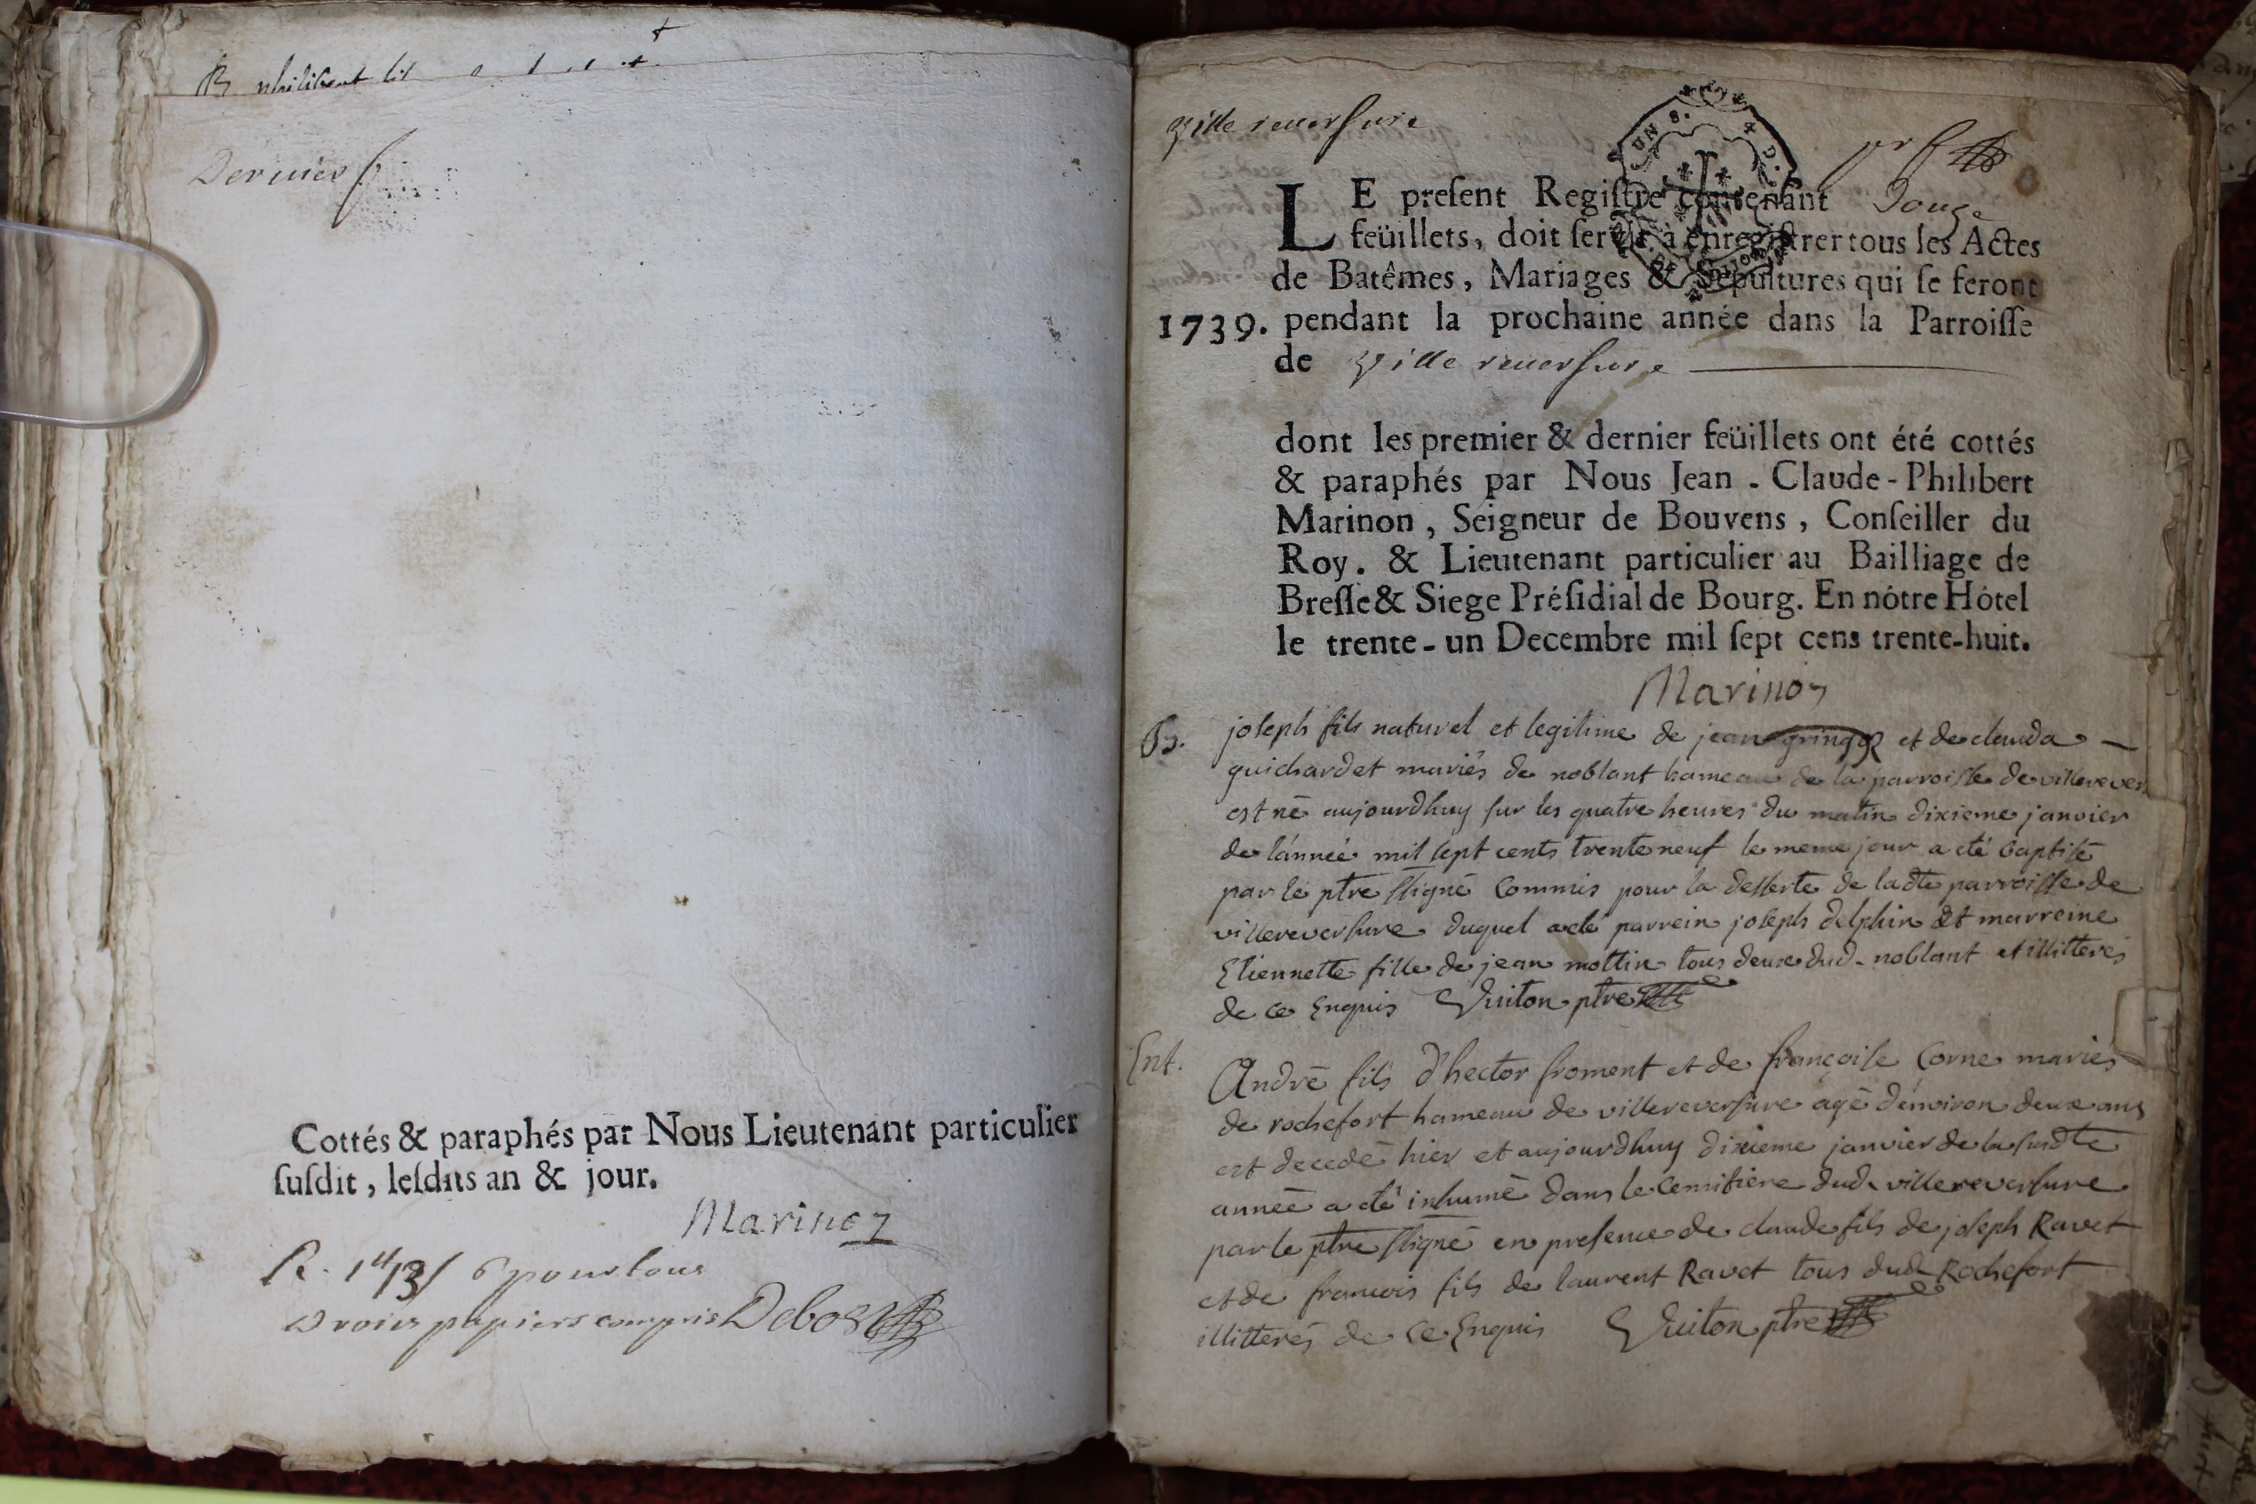 Dernier f
Cottés & paraphés par Nous Lieutenant particulier
susdit, lesdits an & jour.
Marinon
R. 6 pour tous
Droits papiers compris Debost
Ville reversure
UN S. 4 D.
LE present Registre contenant Douze
feüillets, doit servir à enregistrer tous les Actes
de Batêmes, Mariages & Sepultures qui se feront
1739. pendant la prochaine année dans la Parroisse
de Ville reversure
dont les premier & dernier feüillets ont été cottés
& paraphés par Nous Jean - Claude - Philibert
Marinon, Seigneur de Bouvens, Conseiller du
Roy. & Lieutenant particulier au Bailliage de
Bresse & Siege Présidial de Bourg. En nôtre Hôtel
le trente-un Decembre mil sept cens trente-huit.
Marinon
B. joseph fils naturel et legitime de jean gringoz et de clauda
guichardet mariés de noblant hameau de la parroisse de villerevers
est né aujourdhuy sur les quatre heures du matin dixieme janvier
de lánnée mil sept cents trente neuf le meme jour a été baptisé
par le ptre ssigné commis pour la desserte de ladte parroisse de
villereversure duquel a été parrein joseph delphin et marreine
Etiennette fille de jean mottin tous deux dud. noblant et illitterés
de ce Enquis Vuiton ptre
Ent. André fils d'hector froment et de françoise Corne mariés
de rochefort hameau de villereversure agé d'environ deux ans
est decedé hier et aujourdhuy dixieme janvier de la susdte
année a été inhumé dans le Cemitiere dud. villereversure
par le ptre ssigné en presence de claude fils de joseph Ravet
et de francois fils de laurent Ravet tous dud. Rochefort
illitterés de ce Enquis Vuiton ptre